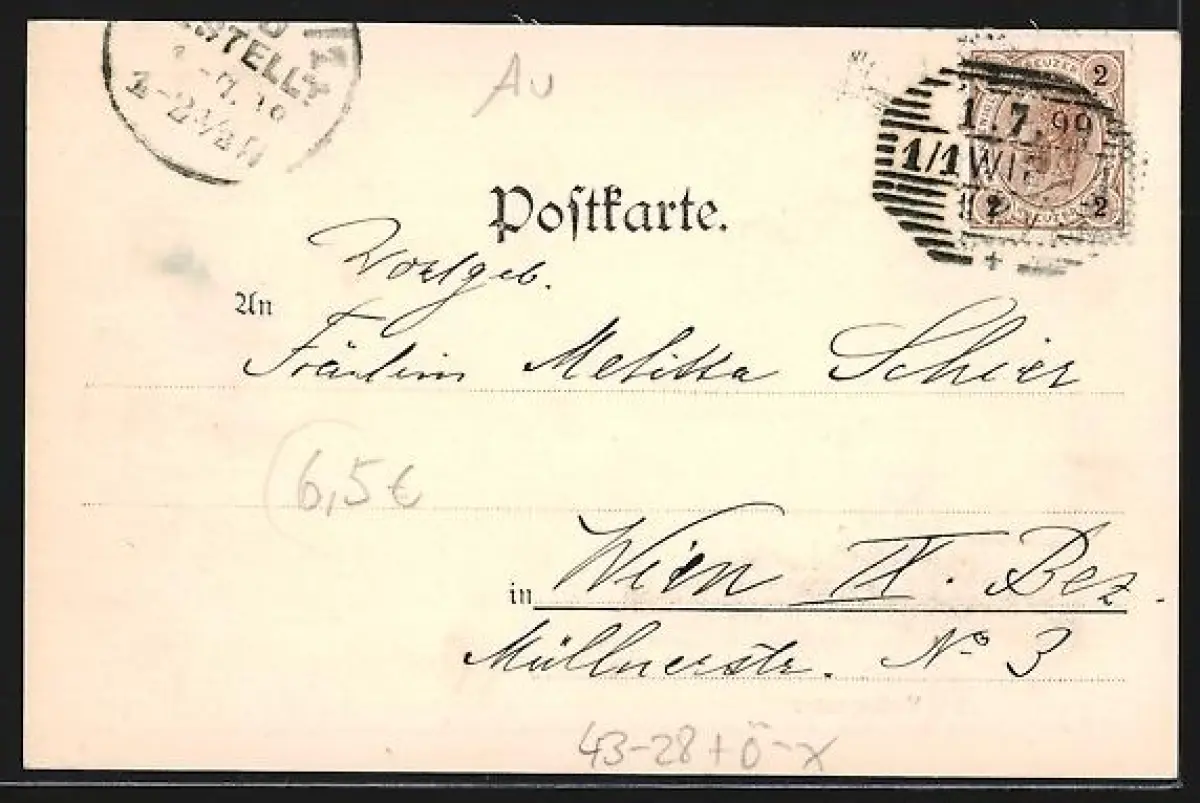 BESTELLT
2-2½N
Au
KREUZER 2
1.7.99
1/1 WIEN
2 2
Postkarte.
An
Fräulein Melitta Schier
6,5€
in Wien IX. Bez.
Müllnerstr. No 3
43-28+Ö-x